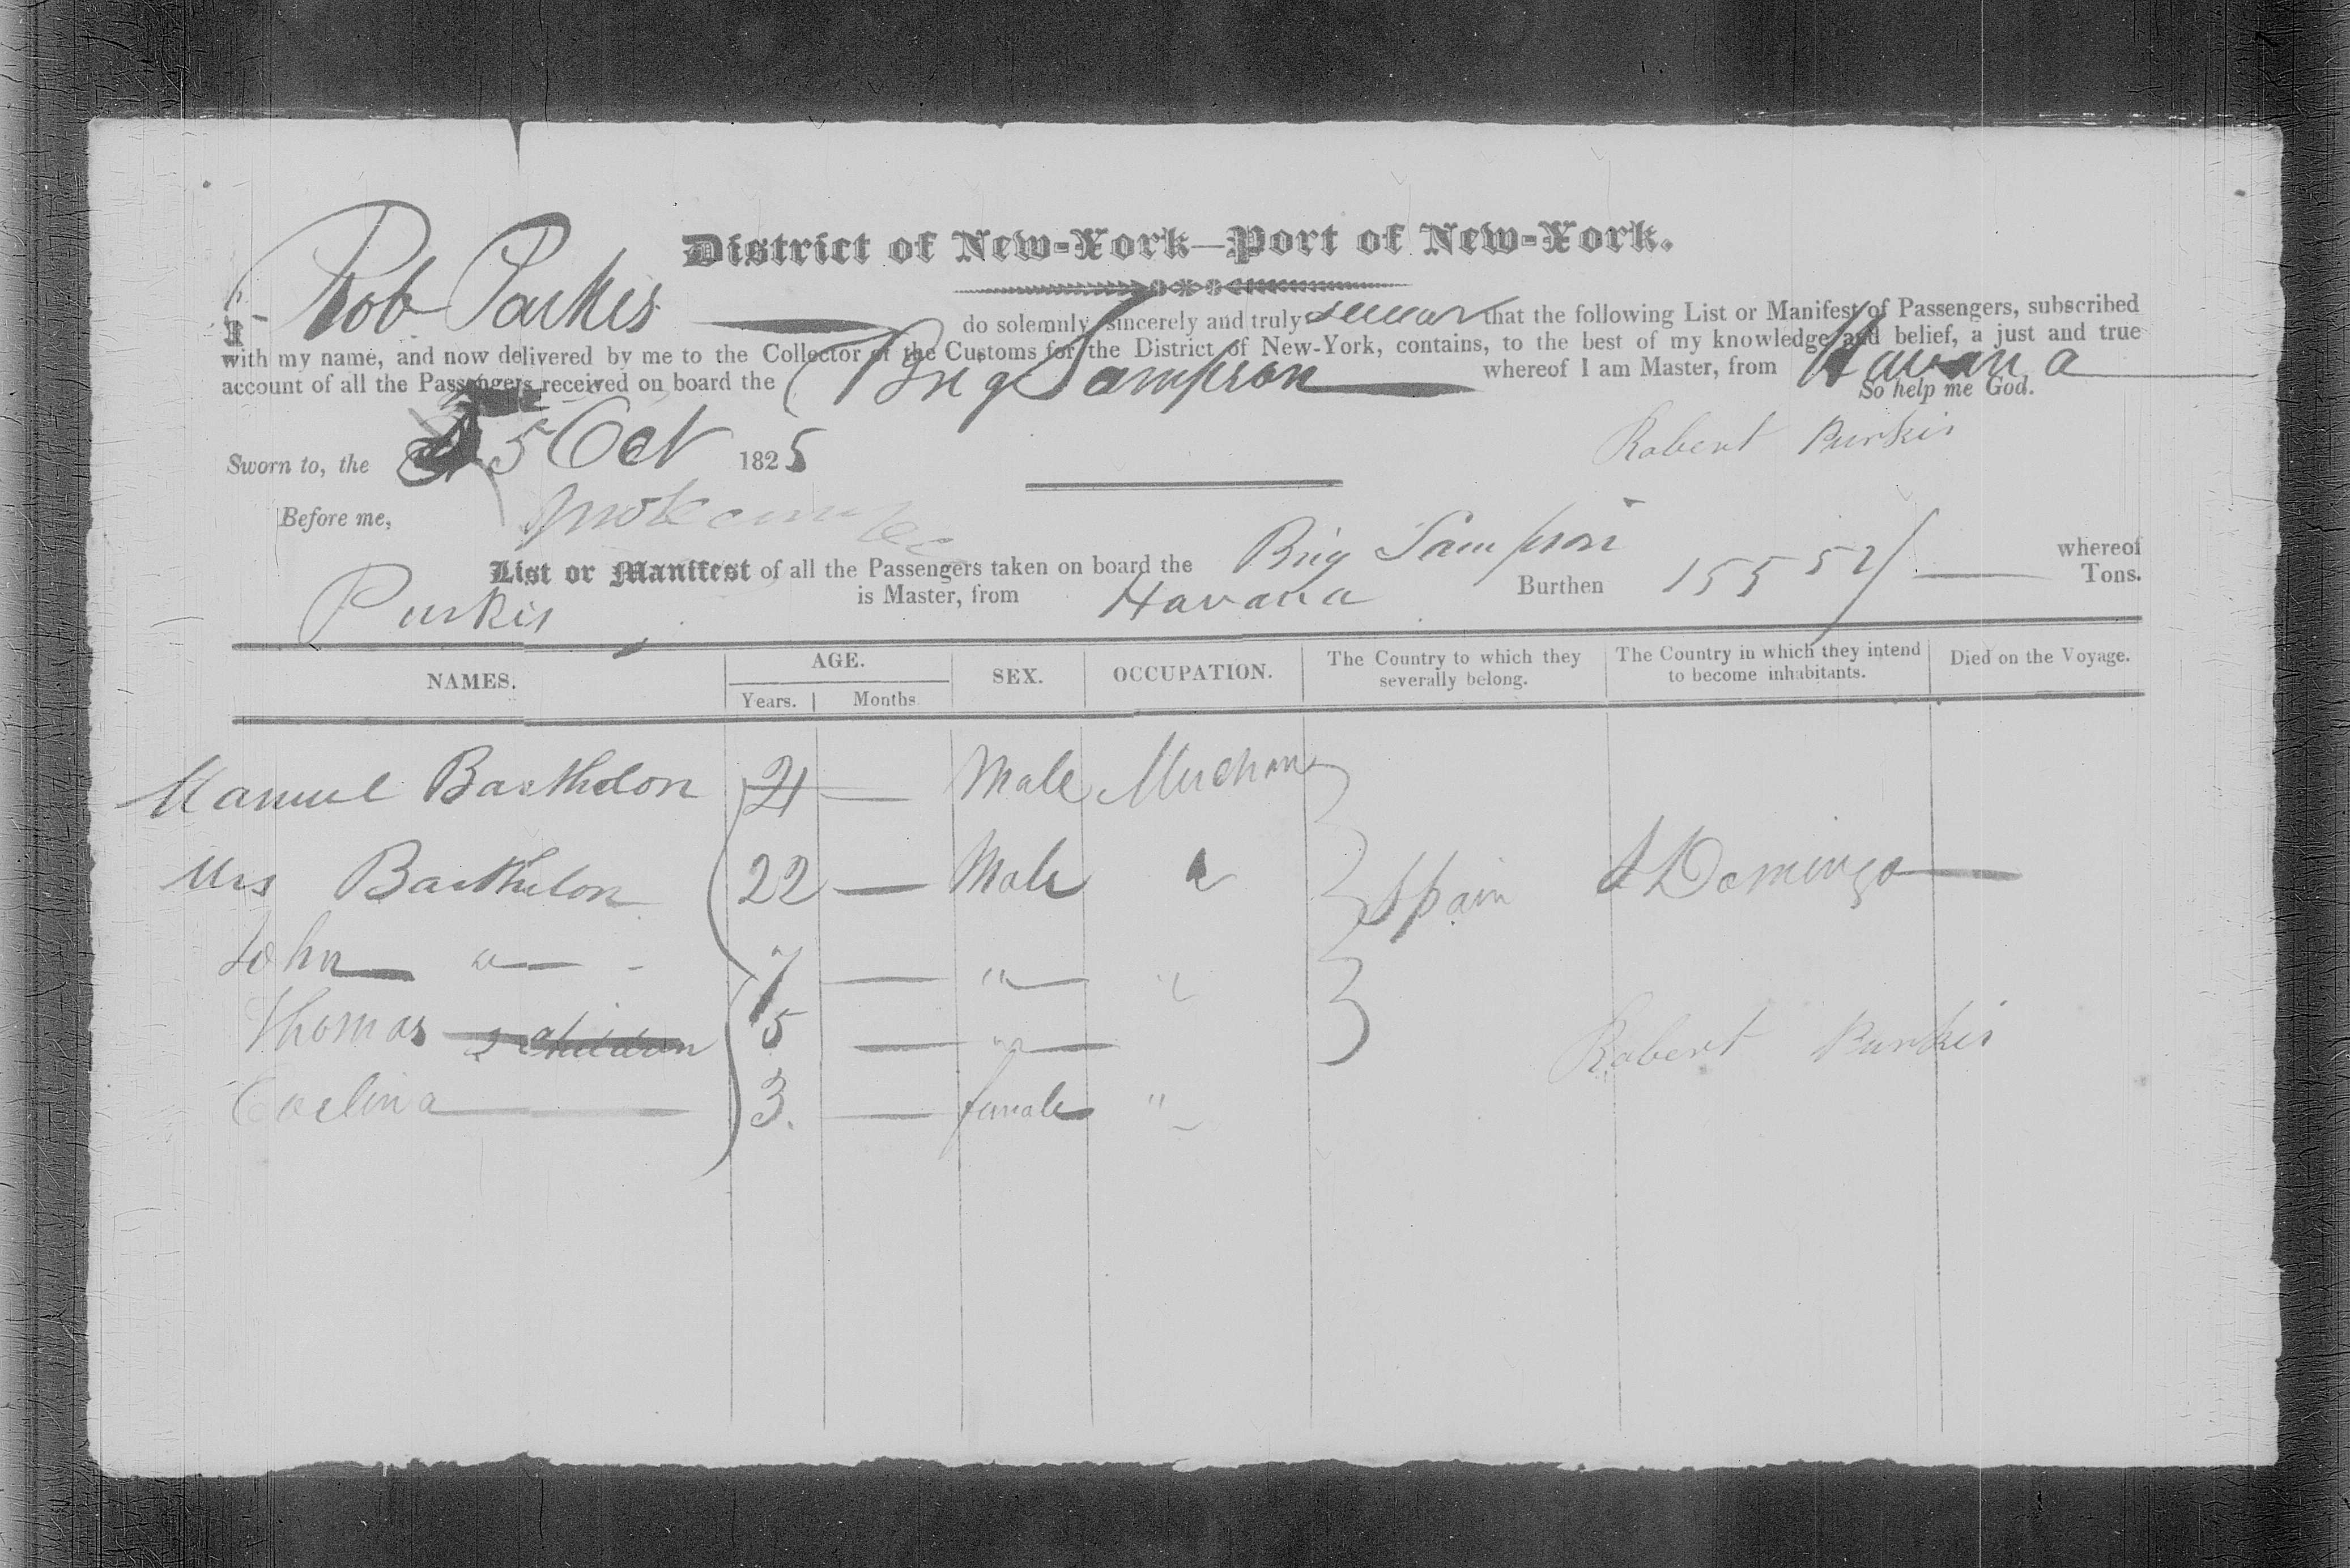 District of New-York—Port of New-York.
I Rob Parkis do solemnly, sincerely and truly swear that the following List or Manifest of Passengers, subscribed
with my name, and now delivered by me to the Collector of the Customs for the District of New-York, contains, to the best of my knowledge and belief, a just and true
account of all the Passengers received on board the Brig Sampson whereof I am Master, from Havana
So help me God.
Robert Purkis
Sworn to, the 5 Oct 1825
Before me,
List or Manifest of all the Passengers taken on board the Brig Sampson whereof
Purkis is Master, from Havana Burthen 155 Tons.
NAMES. AGE. SEX. OCCUPATION. The Country to which they severally belong. The Country in which they intend to become inhabitants. Died on the Voyage.
Years. Months
Manuel Barthelon — Male
Mrs Barthelon 22 — Male Spain St Domingo
John 7 — " "
Thomas 2 children 5 — "
Carlina 3. — female "
Robert Purkis